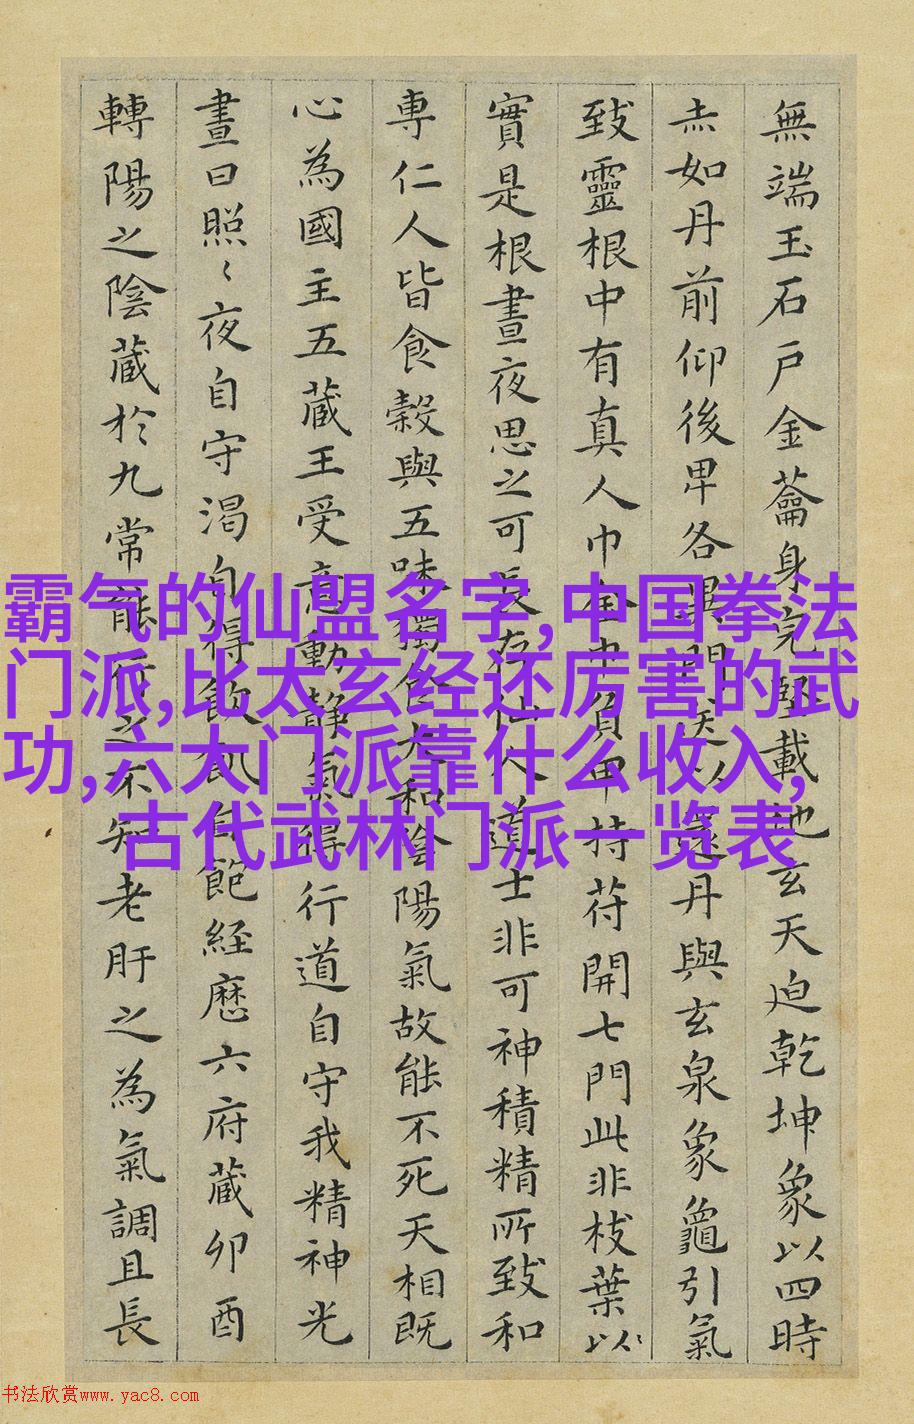 無端玉石戶金蘥身完堅載地玄天迫乾坤象以四時
赤如丹前仰後卑各異門送以還丹與玄泉象龜引氣
致靈根中有真人巾金巾負甲持苻開七門此非枝葉以
實是根晝夜思之可長存仙人道士非可神積精所致和
專仁人皆食穀與五味獨食大和陰陽氣故能不死天相既
心為國主五藏王受意動靜氣得行道自守我精神光
晝日照〻夜自守渴自得飲飢自飽經歷六府藏卯酉
轉陽之陰藏於九常能行之不知老肝之為氣調且長
霸气的仙盟名字,中国拳法
门派,比太玄经还厉害的武
功,六大门派靠什么收入,
古代武林门派一览表
书法欣赏www.yac8.com